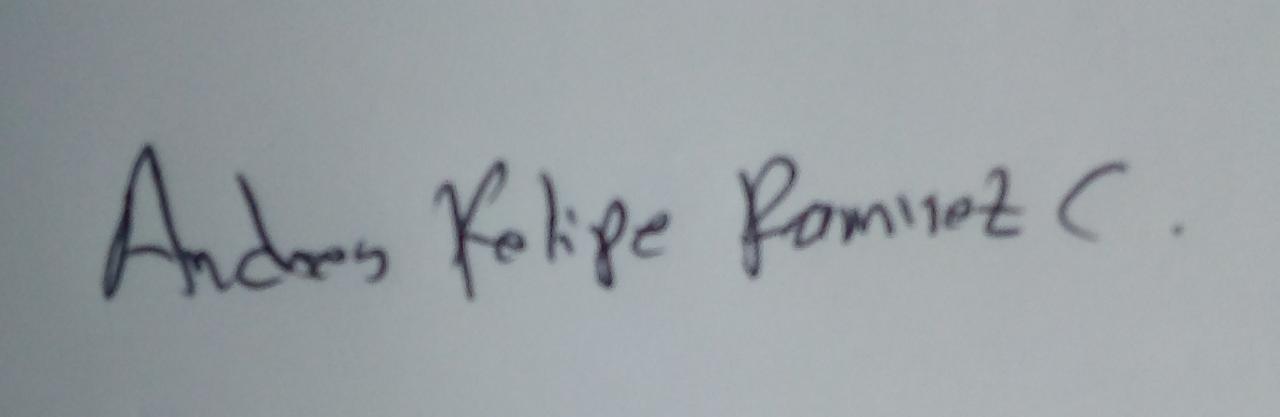 Andres Felipe Ramirez C.